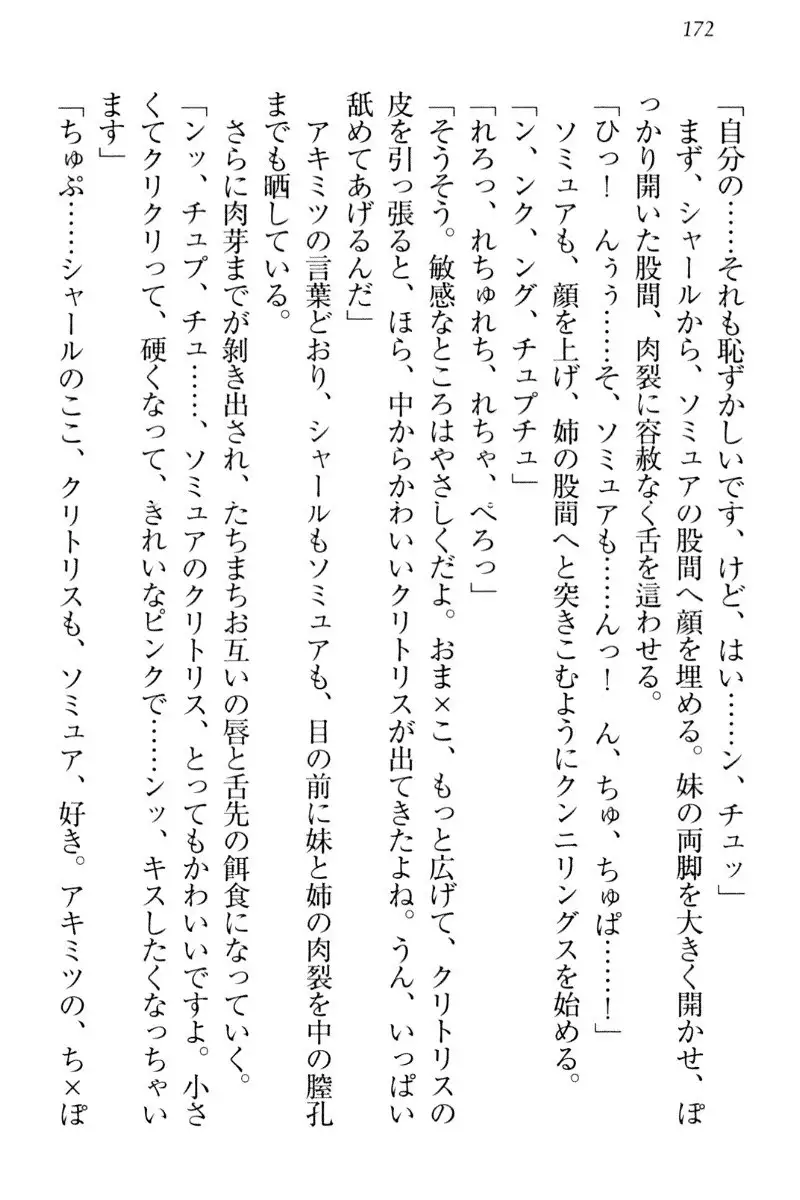 172
「自分の……それも恥ずかしいです、けど、はい……ン、チュッ」
まず、シャールから、ソミュアの股間へ顔を埋める。妹の両脚を大きく開かせ、ぽ
っかり開いた股間、肉裂に容赦なく舌を這わせる。
「ひっ！　んぅぅ……そ、ソミュアも……んっ！　ん、ちゅ、ちゅぱ……！」
ソミュアも、顔を上げ、姉の股間へと突きこむようにクンニリングスを始める。
「ン、ンク、ング、チュプチュ」
「れろっ、れちゅれち、れちゃ、ぺろっ」
「そうそう。敏感なところはやさしくだよ。おま×こ、もっと広げて、クリトリスの
皮を引っ張ると、ほら、中からかわいいクリトリスが出てきたよね。うん、いっぱい
舐めてあげるんだ」
アキミツの言葉どおり、シャールもソミュアも、目の前に妹と姉の肉裂を中の膣孔
までも晒している。
さらに肉芽までが剝き出され、たちまちお互いの唇と舌先の餌食になっていく。
「ンッ、チュプ、チュ……、ソミュアのクリトリス、とってもかわいいですよ。小さ
くてクリクリって、硬くなって、きれいなピンクで……ンッ、キスしたくなっちゃい
ます」
「ちゅぷ……シャールのここ、クリトリスも、ソミュア、好き。アキミツの、ち×ぽ